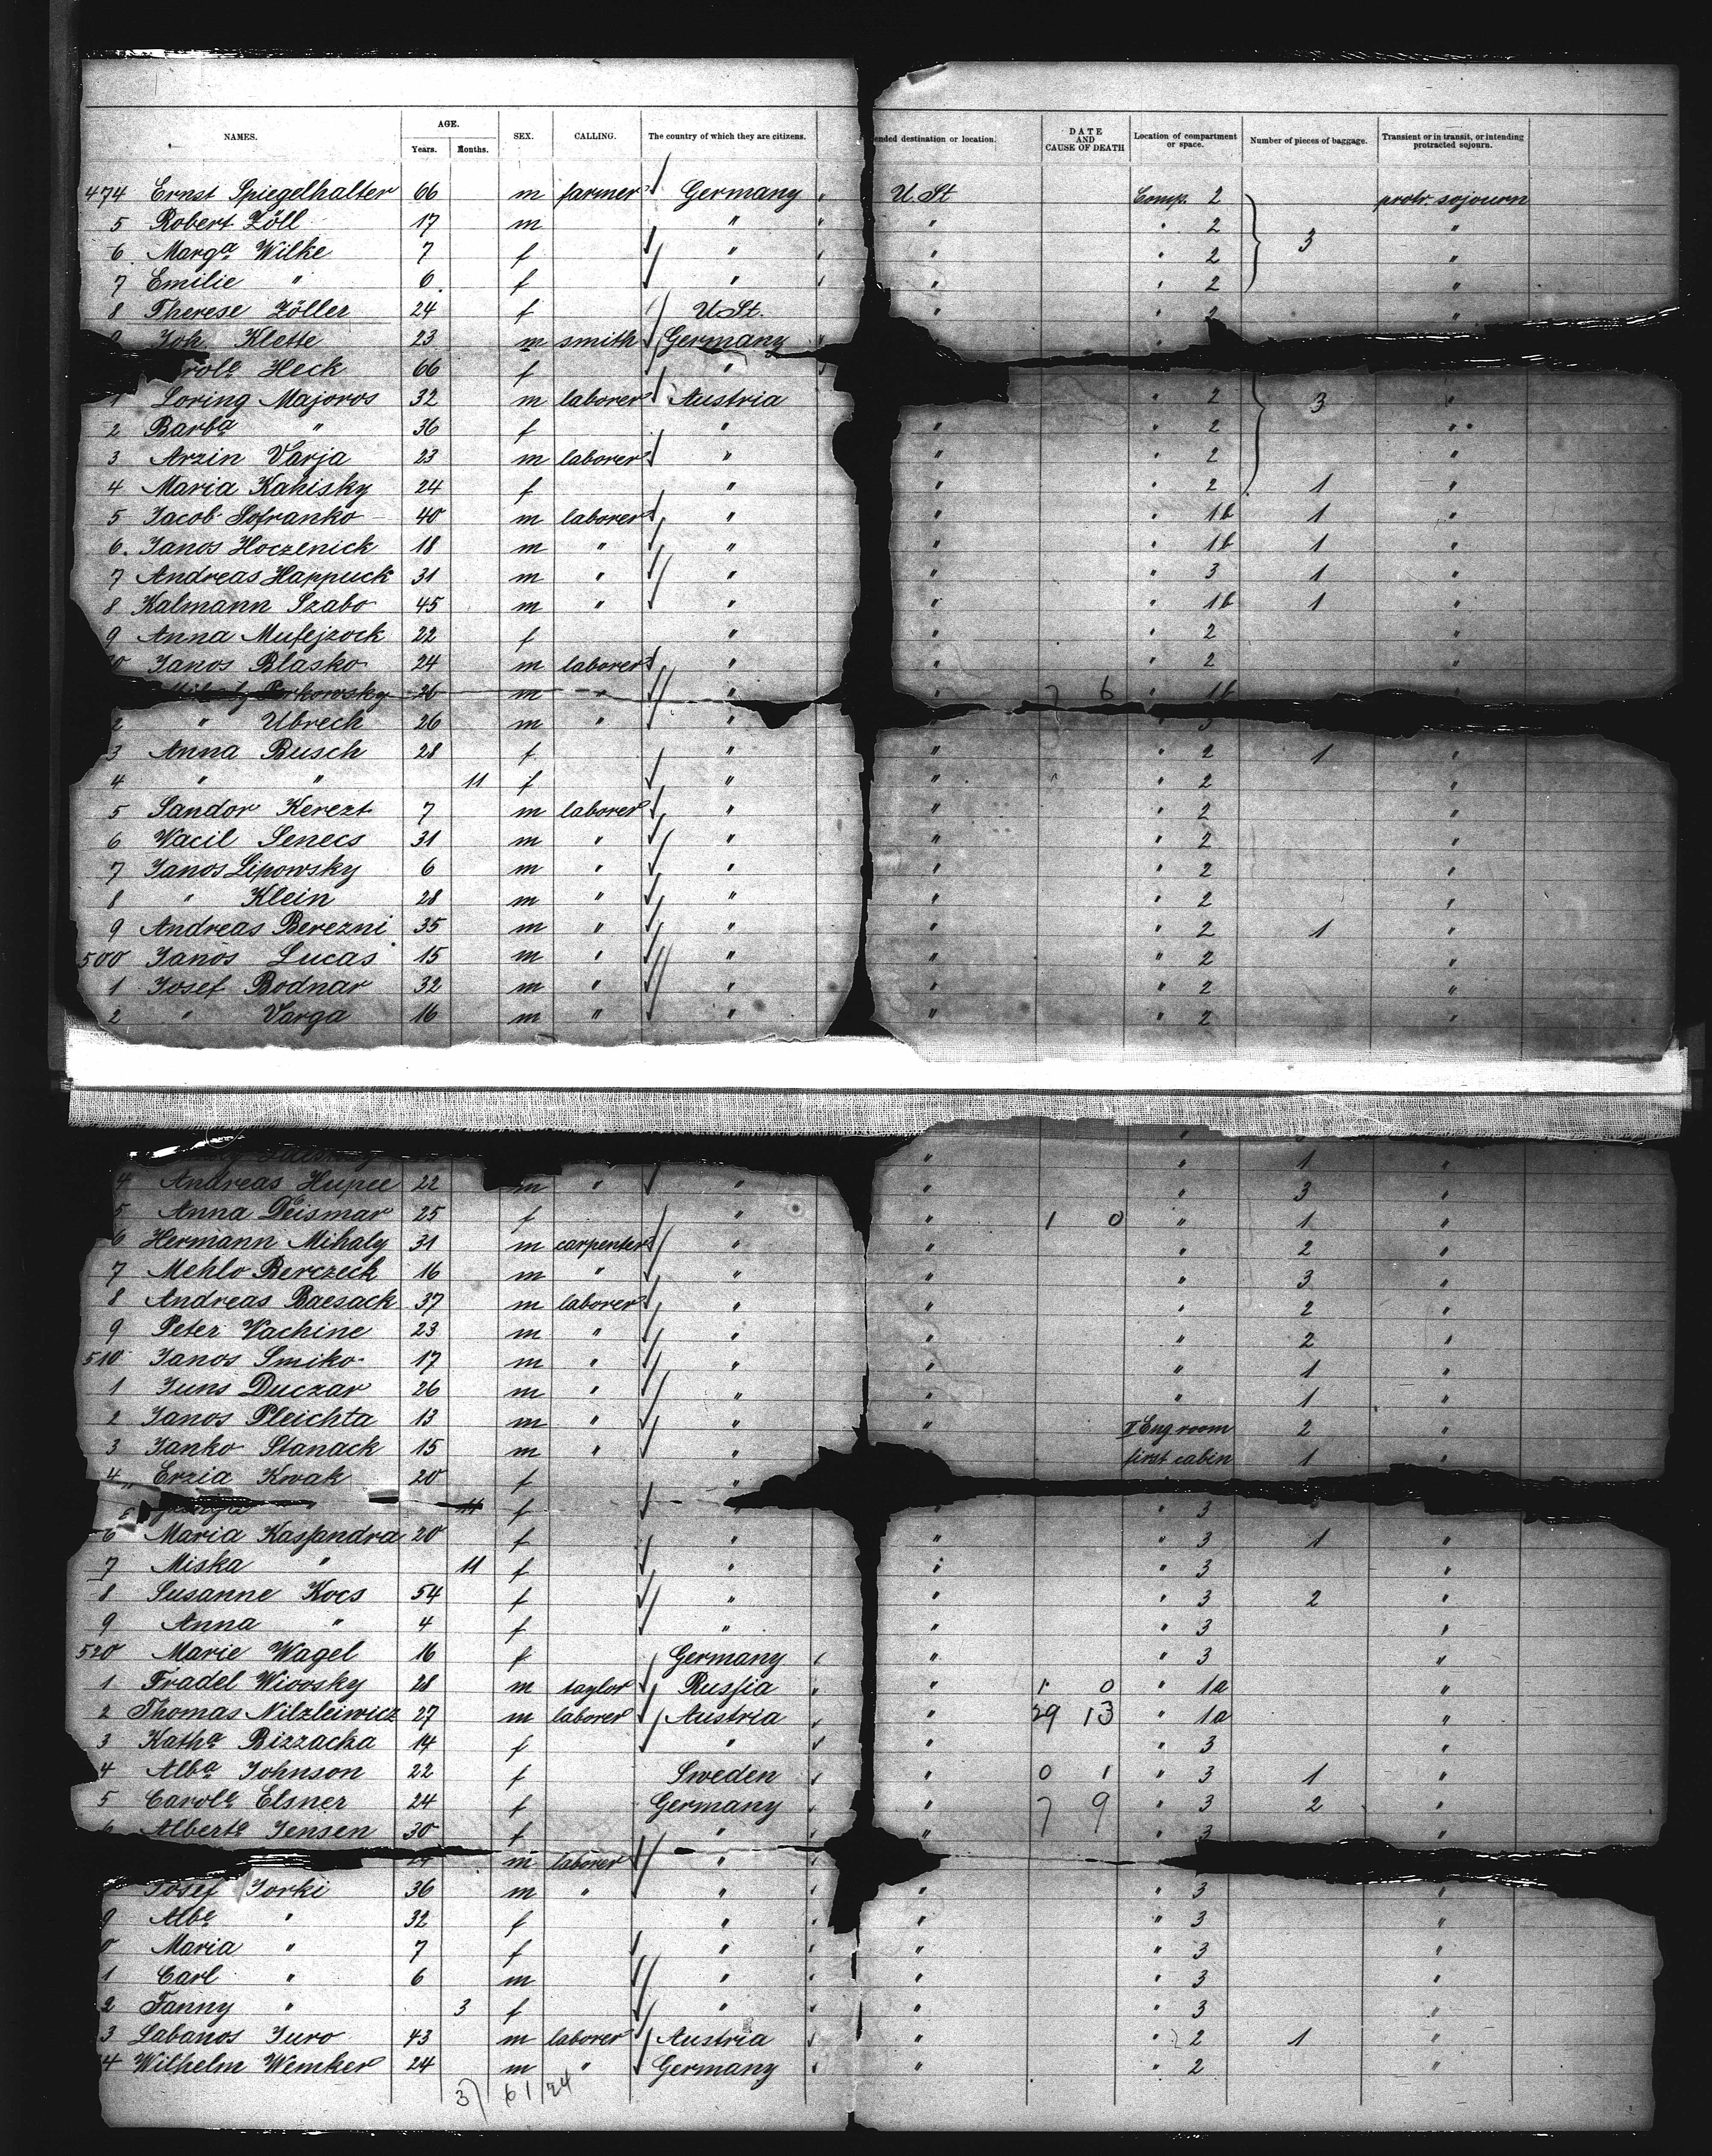 NAMES. AGE. Years. Months. SEX. CALLING. The country of which they are citizens. ended destination or location. DATE AND CAUSE OF DEATH Location of compartment or space. Number of pieces of baggage. Transient or in transit, or intending protracted sojourn.
474 Ernst Spiegelhalter 66 m farmer Germany " U. St Comp. 2 protr. sojourn
5 Robert Zöll 17 m " " " " 2 3 "
6. Marga Wilke 7 f " " " " 2 "
7 Emilie " 6 f " " " " 2 "
8 Therese Zöller 24 f U. St. " " 2 "
Joh. Klette 23 m smith Germany "
Heck 66 f "
1 Loring Majoros 32 m laborer Austria " 2 3 "
2 Barba " 36 f " " " 2 "
3 Arzin Varja 23 m laborer " " " 2 "
4 Maria Kahisky 24 f " " " 2 1 "
5 Jacob Sofranko 40 m laborer " " " 1b 1 "
6. Janos Hoczenick 18 m " " " " 1b 1 "
7 Andreas Happuck 31 m " " " " 3 1 "
8 Kalmann Szabo 45 m " " " " 1b 1 "
9 Anna Mufejzock 22 f " " " 2 "
Janos Blasko 24 m laborer " " " 2 "
Porkowsky 26 m " " " 7 6 " 1b
2 " Ubrech 26 m " " " 3
3 Anna Busch 28 f " " " 2 1 "
4 " " 11 f " " " 2 "
5 Sandor Kerezt 7 m laborer " " " 2 "
6 Wacil Senecs 31 m " " " " 2 "
7 Janos Lipowsky 6 m " " " " 2 "
8 " Klein 28 m " " " " 2 "
9 Andreas Berezni 35 m " " " " 2 1 "
500 Janos Lucas 15 m " " " " 2 "
1 Josef Bodnar 32 m " " " " 2 "
2 " Varga 16 m " " " " 2 "
" " 1 "
4 Andreas Hupee 22 m " " " " 3 "
5 Anna Deismar 25 f " " 1 0 " 1 "
6 Hermann Mihaly 31 m carpenter " " " 2 "
7 Mehlo Berczeck 16 m " " " " 3 "
8 Andreas Baesack 37 m laborer " " " 2 "
9 Peter Wachine 23 m " " " " 2 "
510 Janos Smiko 17 m " " " " 1 "
1 Juns Duczar 26 m " " " " 1 "
2 Janos Pleichta 13 m " " " II Eng. room 2 "
3 Janko Stanack 15 m " " first cabin 1 "
4 Erzia Kwak 20 f "
" 11 f " " " 3
6 Maria Kassandra 20 f " " " 3 1 "
7 Miska " 11 f " " " 3 "
8 Susanne Kocs 54 f " " " 3 2 "
9 Anna " 4 f " " " 3 "
520 Marie Wagel 16 f Germany " " " 3 "
1 Fradel Wiovsky 28 m taylor Russia " " 1 0 " 1a "
2 Thomas Nilzleiwicz 27 m laborer Austria " " 29 13 " 1a "
3 Katha Bizzacka 14 f " " " " 3 "
4 Alba Johnson 22 f Sweden " " 0 1 " 3 1 "
5 Carole Elsner 24 f Germany " " 7 9 " 3 2 "
6 Alberte Jensen 30 f " " " " 3 "
m laborer " "
Josef Jorki 36 m " " " " " 3 "
9 Albe " 32 f " " " " 3 "
0 Maria " 7 f " " " " 3 "
1 Carl " 6 m " " " " 3 "
2 Fanny " 3 f " " " " 3 "
3 Labanos Juro 43 m laborer Austria " " " 2 1 "
4 Wilhelm Wemker 24 m " Germany " " " 2 "
3) 61/24